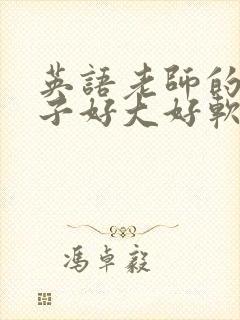 英語老師的
子好大好軟
馮卓毅